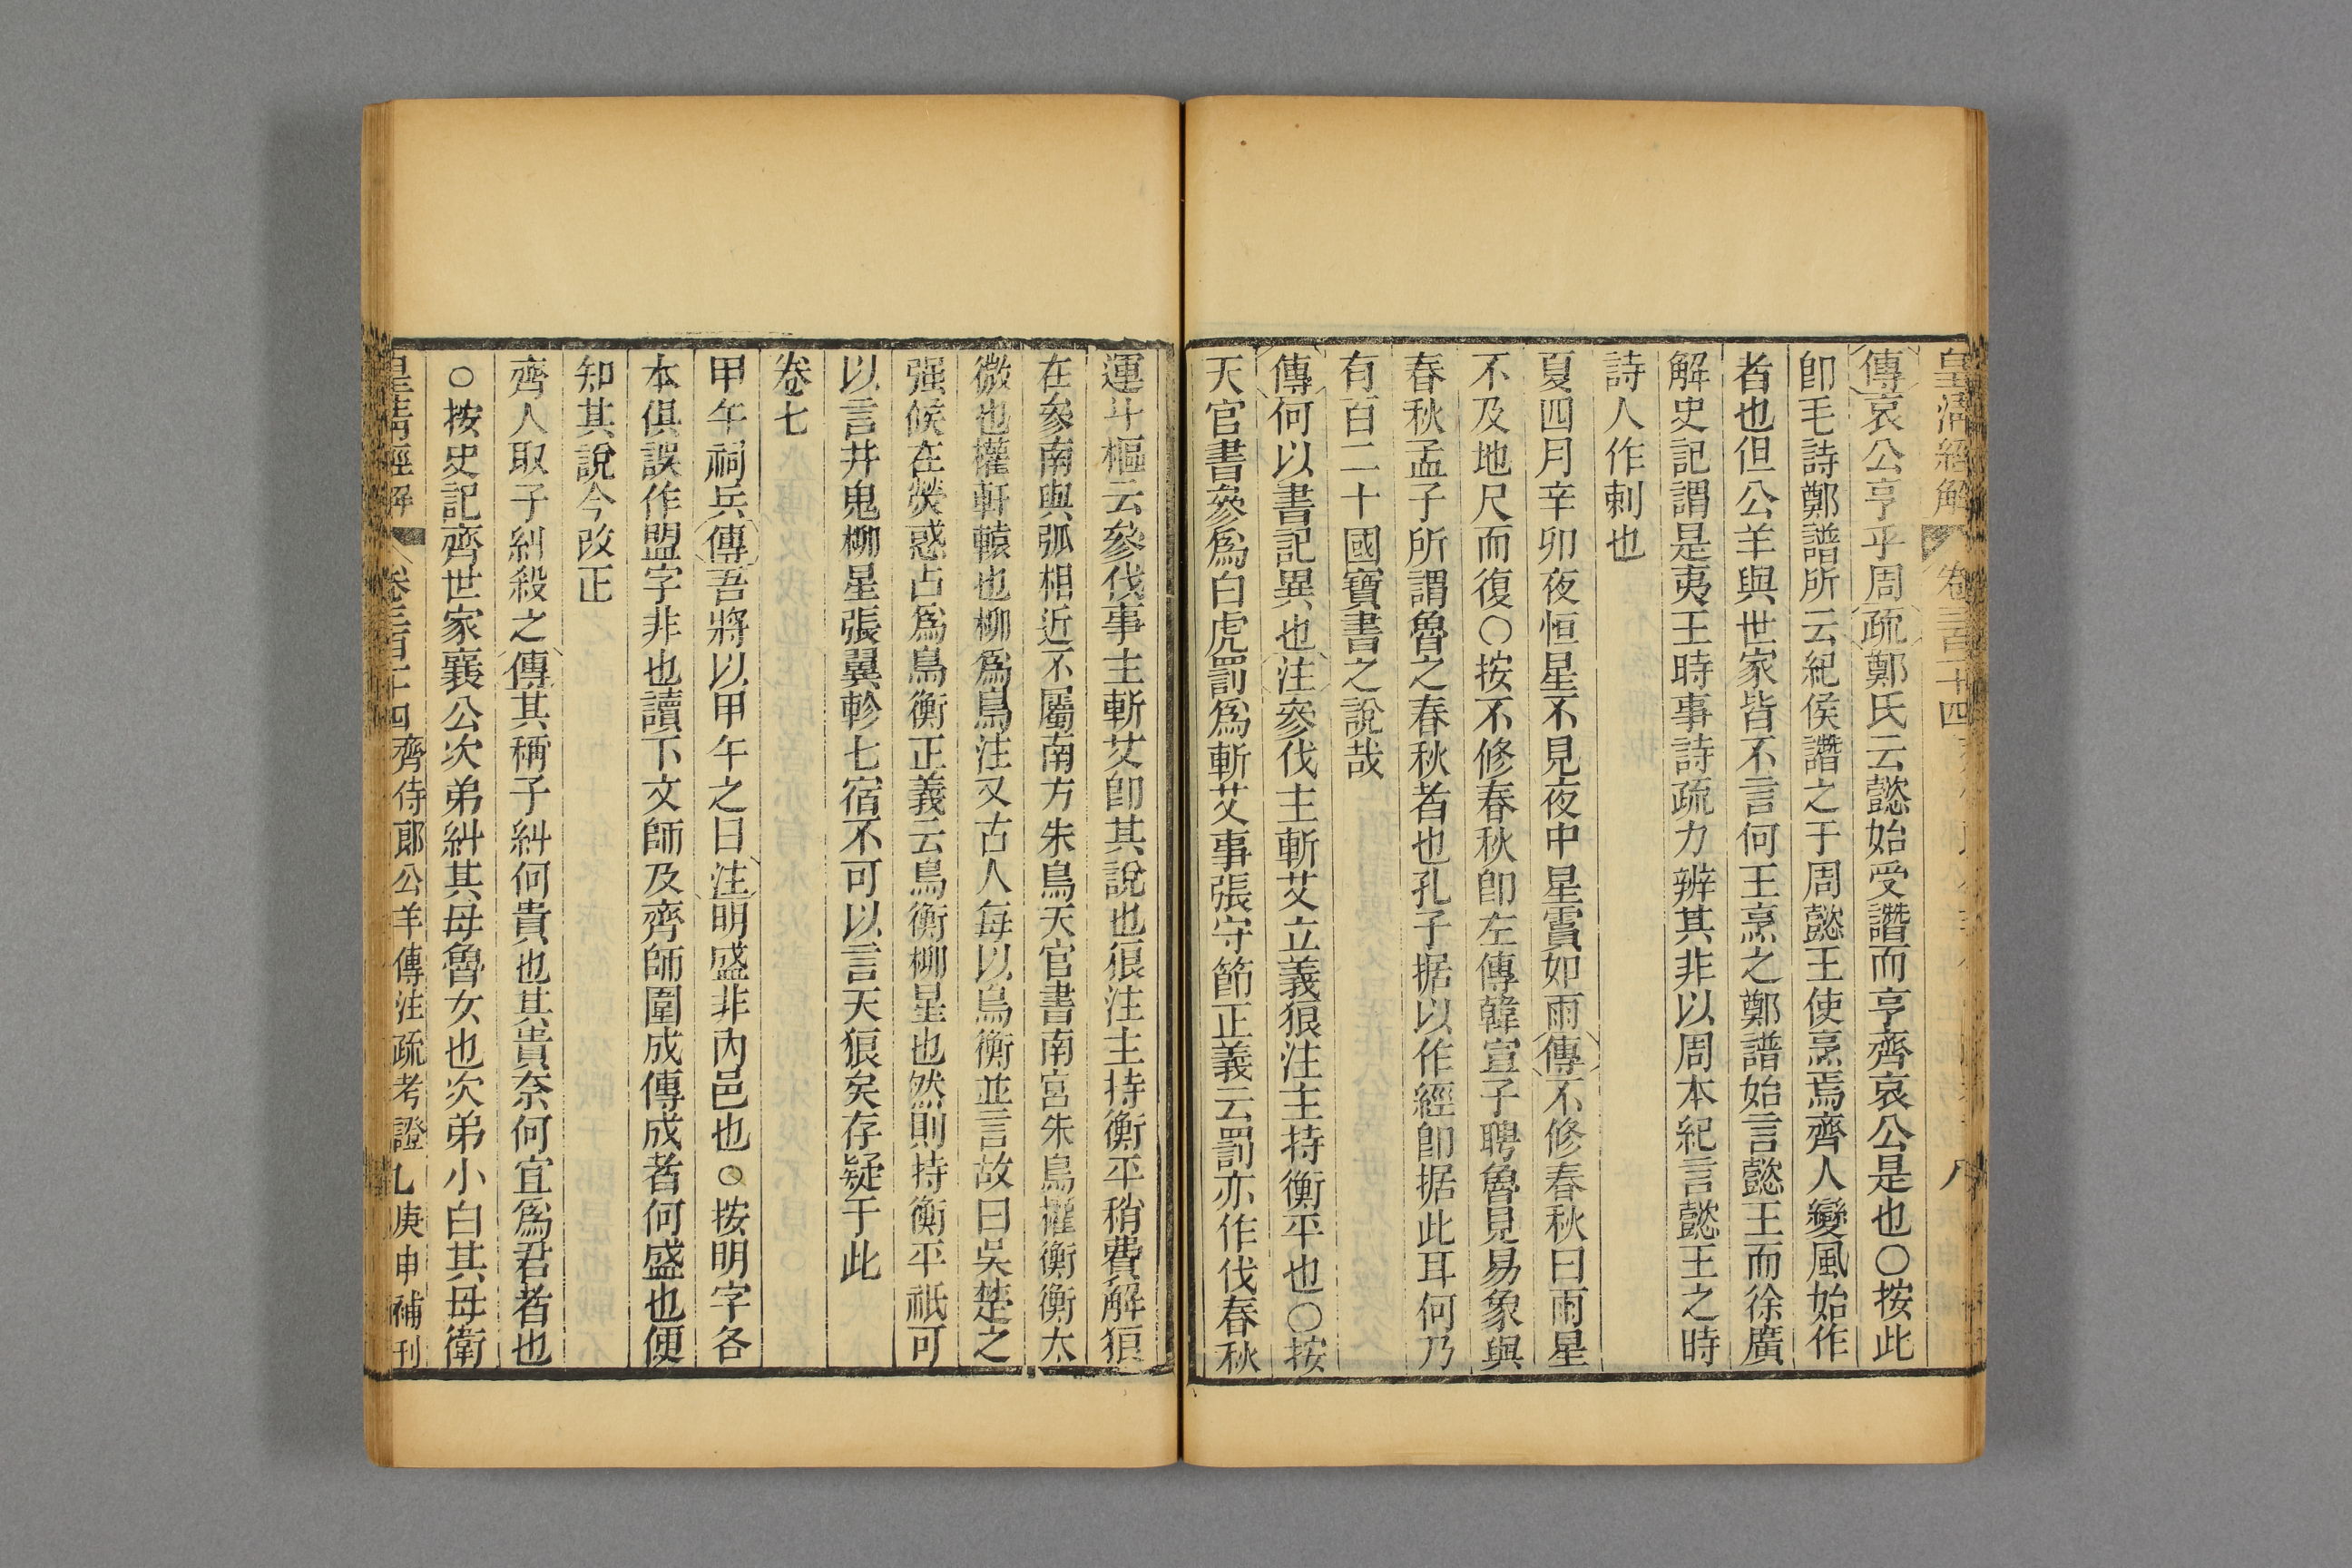 皇清經解 卷三百十四 八
傳哀公亨乎周疏鄭氏云懿始受譖而亨齊哀公是也○按此
卽毛詩鄭譜所云紀侯譖之于周懿王使烹焉齊人變風始作
者也但公羊與世家皆不言何王烹之鄭譜始言懿王而徐廣
解史記謂是夷王時事詩疏力辨其非以周本紀言懿王之時
詩人作刺也
夏四月辛卯夜恒星不見夜中星霣如雨傳不修春秋曰雨星
不及地尺而復○按不修春秋卽左傳韓宣子聘魯見易象與
春秋孟子所謂魯之春秋者也孔子据以作經卽据此耳何乃
有百二十國寶書之說哉
傳何以書記異也注參伐主斬艾立義狼注主持衡平也○按
天官書參爲白虎罰爲斬艾事張守節正義云罰亦作伐春秋
運斗樞云參伐事主斬艾卽其說也狼注主持衡平稍費解狼
在參南與弧相近不屬南方朱鳥天官書南宮朱鳥權衡衡太
微也權軒轅也柳爲鳥注又古人每以鳥衡並言故曰吳楚之
强候在熒惑占爲鳥衡正義云鳥衡柳星也然則持衡平祇可
以言井鬼柳星張翼軫七宿不可以言天狼矣存疑于此
卷七
甲午祠兵傳吾將以甲午之日注明盛非內邑也○按明字各
本俱誤作盟字非也讀下文師及齊師圍成傳成者何盛也便
知其說今改正
齊人取子糾殺之傳其稱子糾何貴也其貴奈何宜爲君者也
○按史記齊世家襄公次弟糾其母魯女也次弟小白其母衛
皇清經解 卷三百十四 齊侍郎公羊傳注疏考證 九 庚申補刊